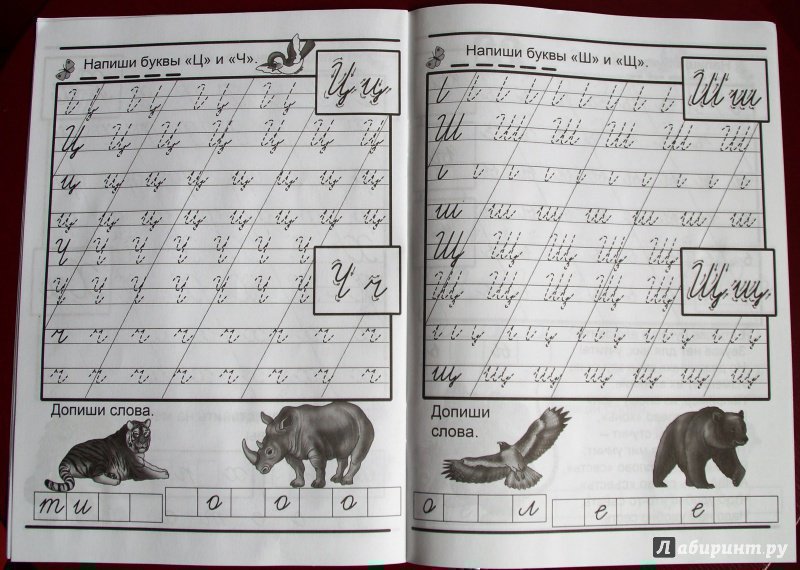 Напиши буквы «Ц» и «Ч».
Ц ц
Ц Ц Ц Ц Ц Ц Ц
ц ц ц ц ц ц ц ц
ц ц ц ц ц ц ц ц
Ч Ч Ч Ч Ч Ч Ч
Ч ч
Ч Ч Ч Ч Ч Ч Ч
ч ч ч ч ч ч ч ч
ч ч ч ч ч ч ч ч
Допиши слова.
т и
о о о
Напиши буквы «Ш» и «Щ».
Ш ш
Ш Ш Ш Ш Ш Ш
ш ш ш ш ш ш ш
Щ Щ Щ Щ Щ
Щ щ
Щ Щ Щ Щ Щ
щ щ щ щ щ щ щ
Допиши
слова.
о л
е е
Лабиринт.ру